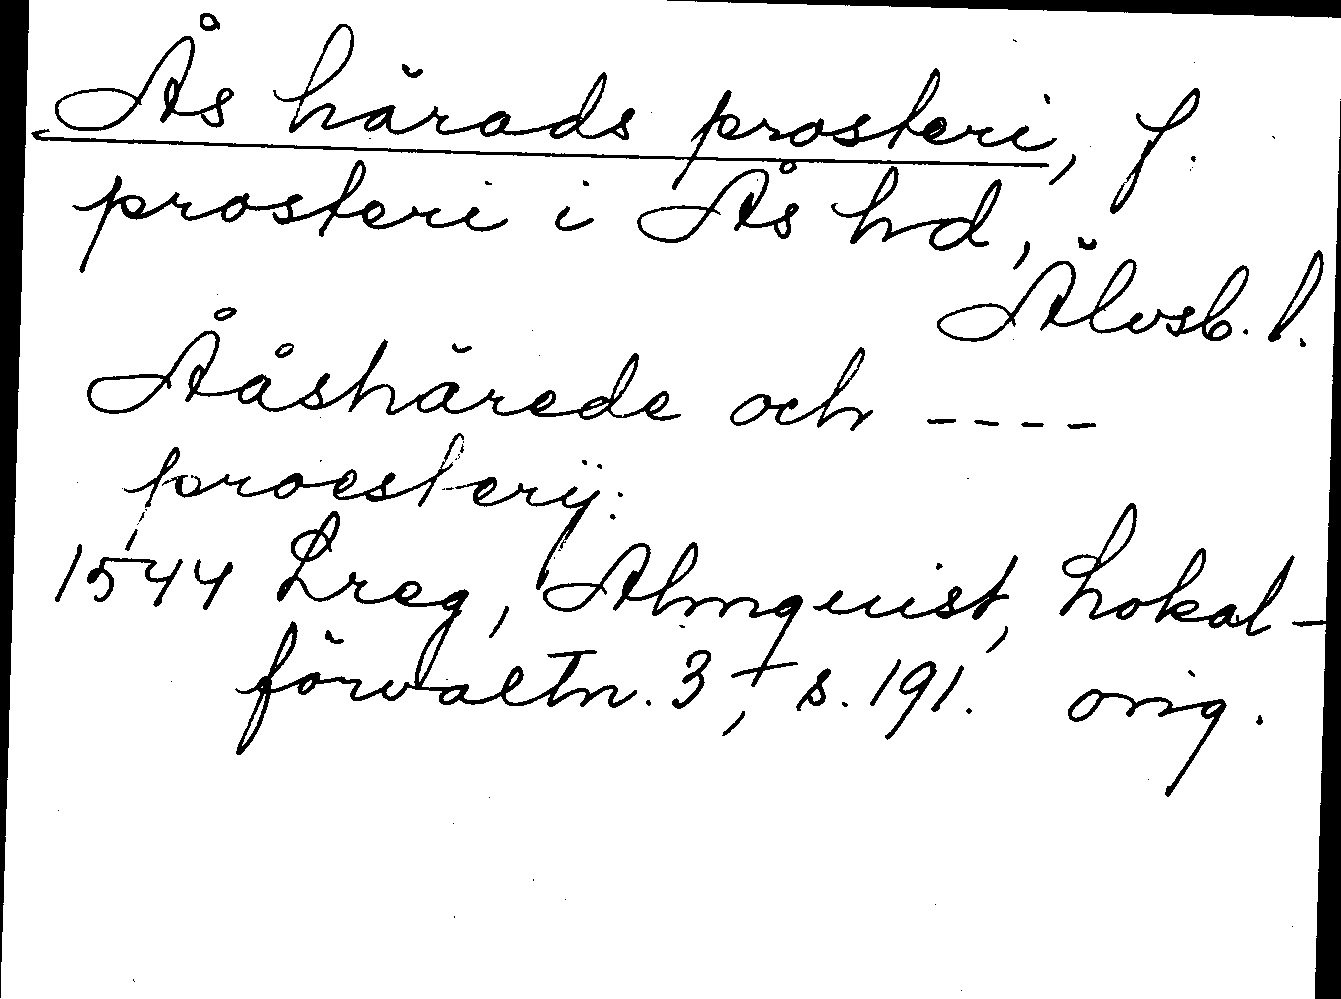 Ås härads prosteri, f.
prosteri i Ås hd,
Älvsb. l.
Ååshärede och ----
proesterÿ.
1544 Lreg, Almquist, Lokal-
förvaltn. 3, s. 191. orig.